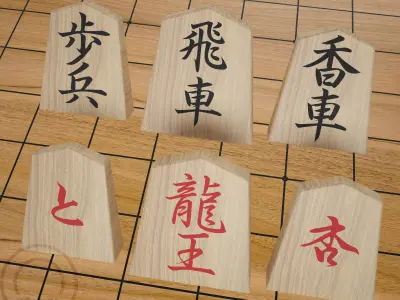 歩兵
飛車
香車
と
龍王
杏